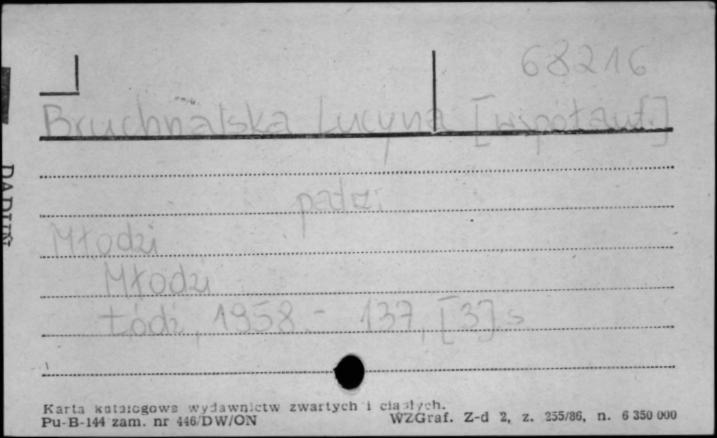 68216
Bruchnalska Lucyna [współaut.]
padz.
Młodzi
Młodzi
Łódź, 1958.- 137, [3] s
Karta katalogowa wydawnictw zwartych i ciągłych.
Pu-B-144 zam. nr 446/DW/ON WZGraf. Z-d 2, z. 255/86, n. 6 350 000